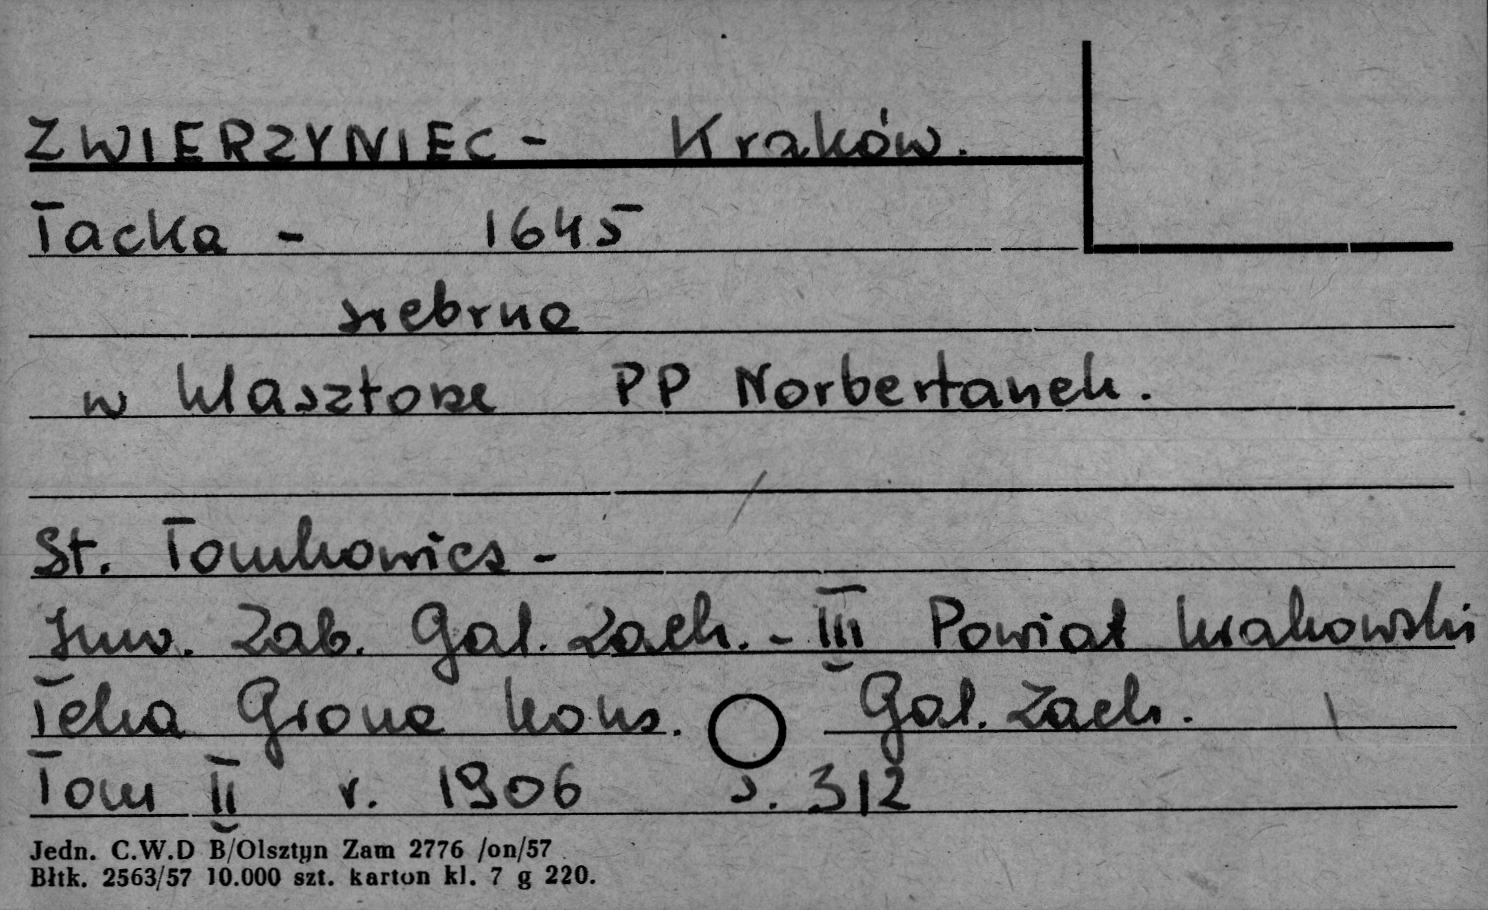 ZWIERZYNIEC - Kraków.
Tacka - 1645
srebrna
w klasztorze PP Norbertanek.
St. Tomkowicz -
Inw. Zab. Gal. Zach. - III Powiat krakowski
Teka Grona kons. Gal. Zach.
Tom II r. 1906 s. 312
Jedn. C.W.D B/Olsztyn Zam 2776 /on/57
Błtk. 2563/57 10.000 szt. karton kl. 7 g 220.